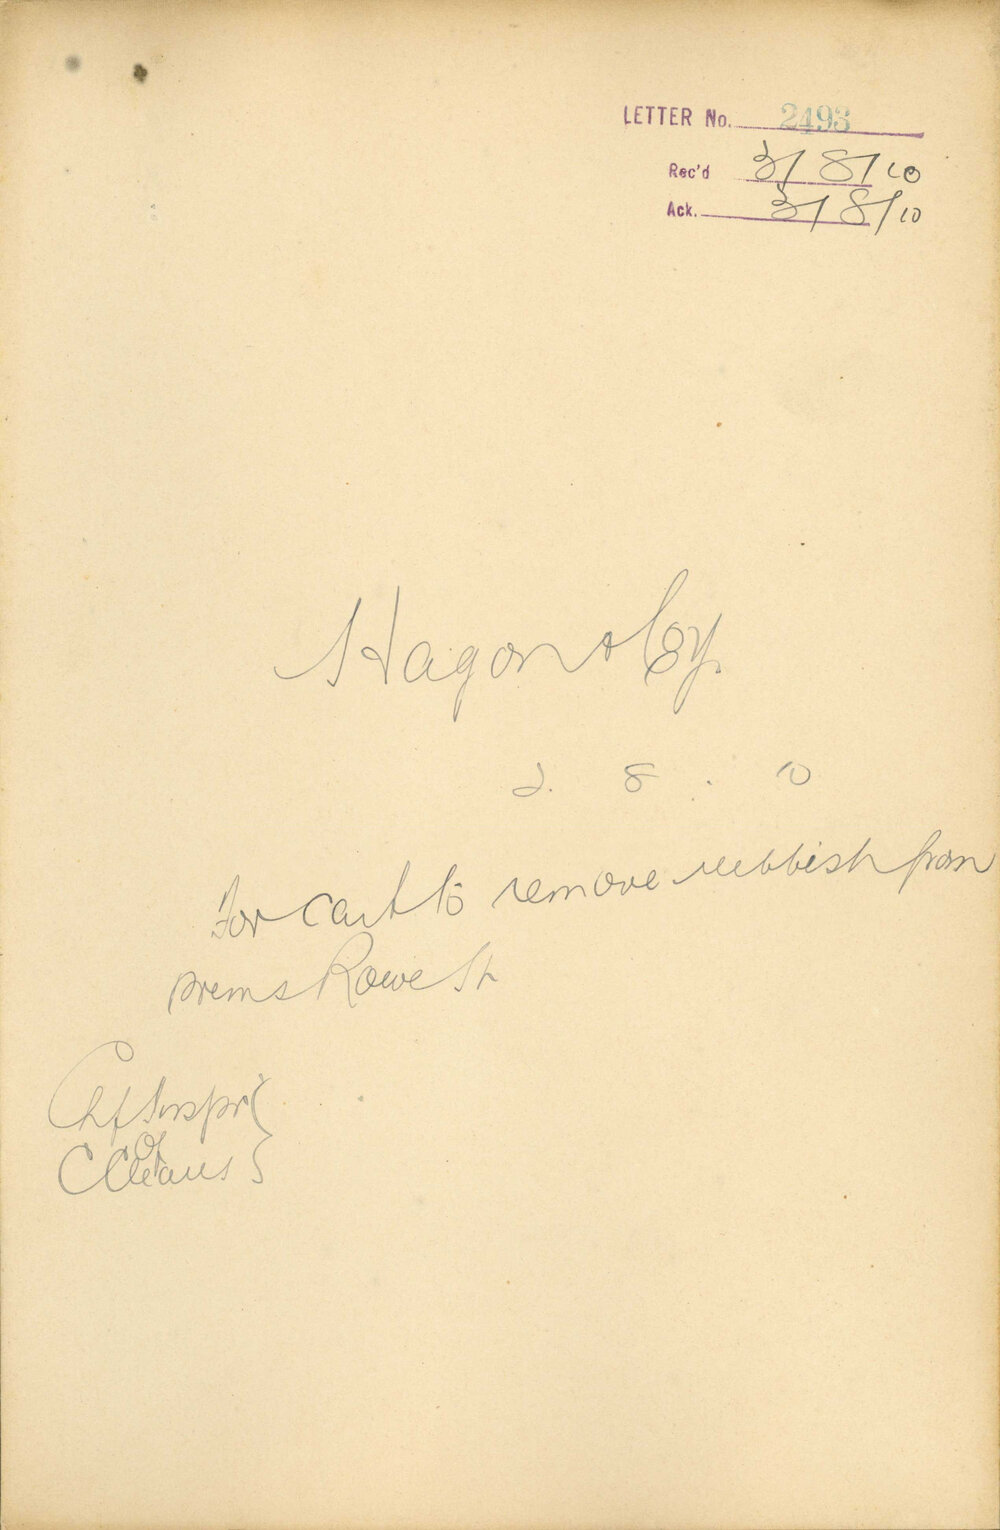 LETTER No. 2493
Rec'd 3/8/10
Ack. 3/8/10
Hagon & Coy.
2. 8. 10
For cart to remove rubbish from
prems Rowe St
Chf Inspr
of
C Cleans